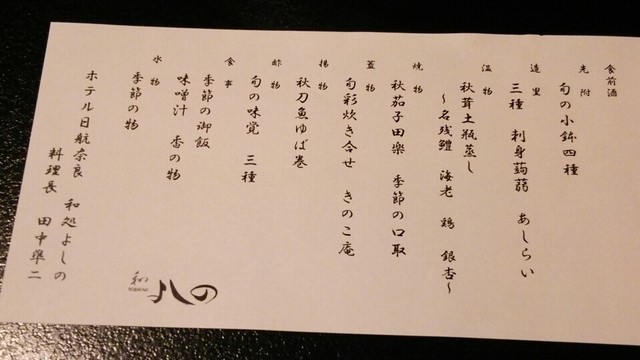 食前酒
先附
旬の小鉢四種
造里
三種 刺身蒟蒻 あしらい
温物
秋茸土瓶蒸し
～名残鱧 海老 鶏 銀杏～
焼物
秋茄子田楽 季節の口取
蓋物
旬彩炊き合せ きのこ庵
揚物
秋刀魚ゆば巻
酢物
旬の味覚 三種
食事
季節の御飯
味噌汁 香の物
水物
季節の物
ホテル日航奈良 和処よしの
料理長 田中準二
和 よしの